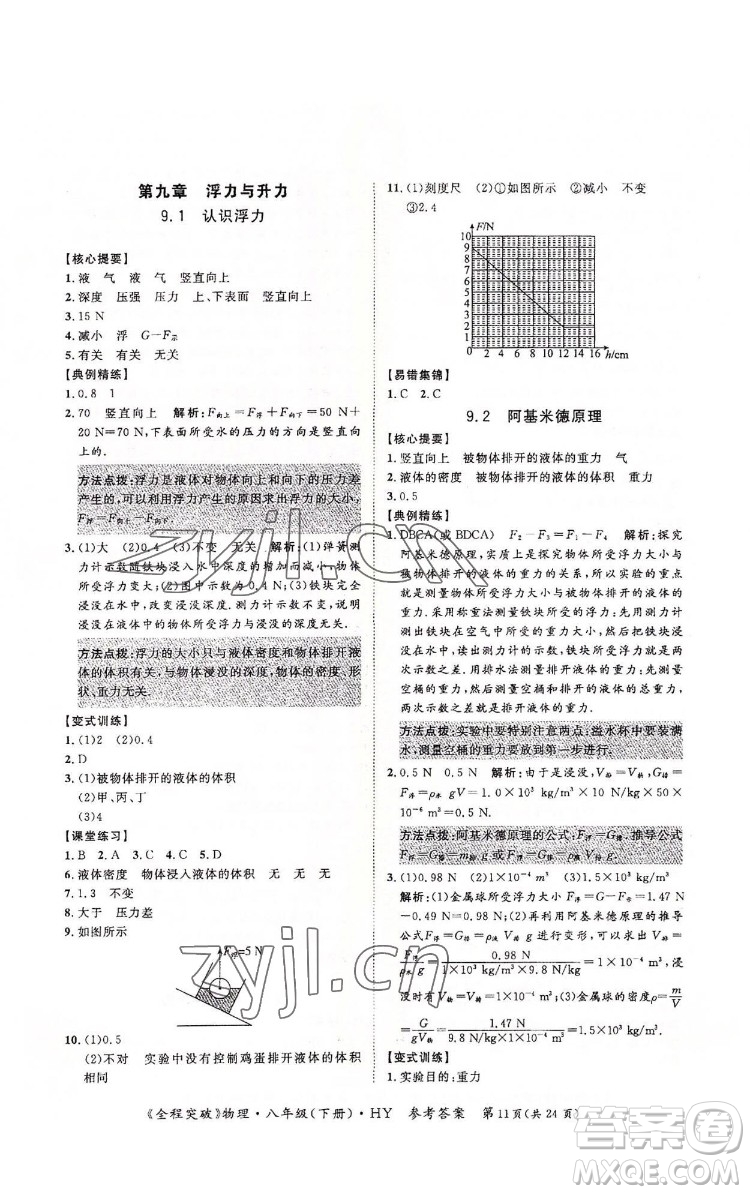 第九章 浮力与升力
9.1 认识浮力
【核心提要】
1. 液 气 液 气 竖直向上
2. 深度 压强 压力 上、下表面 竖直向上
3. 15 N
4. 减小 浮 G－F示
5. 有关 有关 无关
【典例精练】
1. 0.8 1
2. 70 竖直向上 解析:F向上＝F浮＋F向下＝50 N＋
20 N＝70 N,下表面所受水的压力的方向是竖直向
上的.
方法点拨:浮力是液体对物体向上和向下的压力差
产生的,可以利用浮力产生的原因求出浮力的大小,
F浮＝F向上－F向下.
3. (1)大 (2)0.4 (3)不变 无关 解析:(1)弹簧测力
计示数随铁块浸入水中深度的增加而减小,物体
所受浮力变大;(2)图中示数为0.4;(3)铁块完全
浸没在水中,改变浸没深度,测力计示数不变,说明
浸没在水中的物体所受浮力大小与浸没的深度无关.
方法点拨:浮力的大小只与液体密度和物体排开液
体的体积有关,与物体浸没的深度、物体的密度、形
状、重力无关.
【变式训练】
1. (1)2 (2)0.4
2. D
3. (1)被物体排开的液体的体积
(2)甲、丙、丁
(3)4
【课堂练习】
1. B 2. A 3. C 4. C 5. D
6. 液体密度 物体浸入液体的体积 无 无 无
7. 1.3 不变
8. 大于 压力差
9. 如图所示
F浮＝5 N
10. (1)0.5
(2)不对 实验中没有控制鸡蛋排开液体的体积
相同
11. (1)刻度尺 (2)①如图所示 ②减小 不变
③2.4
F/N
10
9
8
7
6
5
4
3
2
1
0 2 4 6 8 10 12 14 16 h/cm
【易错集锦】
1. C 2. C
9.2 阿基米德原理
【核心提要】
1. 竖直向上 被物体排开的液体的重力 气
2. 液体的密度 被物体排开的液体的体积 重力
3. 0.5
【典例精练】
1. DBCA(或 BDCA) F₂－F₃＝F₁ 解析:探究
阿基米德原理,实质上是探究物体所受浮力大小与
被物体排开的液体的重力大小的关系,所以实验的
原理是:采用称重法测量铁块所受的浮力;先用测力计
测出铁块在空气中所受的重力,再测出铁块在水中
所受的拉力,两次示数之差就是浮力的大小;先测量
空桶的重力,再测量桶和被排开的液体的总重力,
两次示数之差就是被排开的液体的重力.
方法点拨:实验中要特别注意两点:溢水杯中要装满
水,测量空桶的重力要放到第一步进行.
2. 0.5 N 0.5 N 解析:由于是浸没,V排＝V物,G排
＝F浮＝ρ水gV排＝1.0×10³ kg/m³×10 N/kg×50×
10⁻⁶ m³＝0.5 N.
方法点拨:阿基米德原理的公式:F浮＝G排,推导公式
F浮＝G排＝m排g 或 F浮＝G排＝ρ液gV排.
3. (1)0.98 N (2)1×10⁻⁴ m³ (3)1.5×10³ kg/m³
解析:(1)金属球所受浮力大小F浮＝G－F＝1.47 N
－0.49 N＝0.98 N;(2)根据阿基米德原理的推导
公式F浮＝G排＝ρ水gV排进行变形,可得V排＝
F浮/ρ水g＝0.98 N/1×10³ kg/m³×9.8 N/kg＝1×10⁻⁴ m³,浸
没时有V物＝V排＝1×10⁻⁴ m³;(3)金属球的密度ρ＝m/V
＝G/gV物＝1.47 N/9.8 N/kg×1×10⁻⁴ m³＝1.5×10³ kg/m³.
【变式训练】
1. 实验目的:重力
《全程突破》物理·八年级(下册)·HY 参考答案 第11页(共24页)
zyjl.cn
zyjl.cn
答案圈